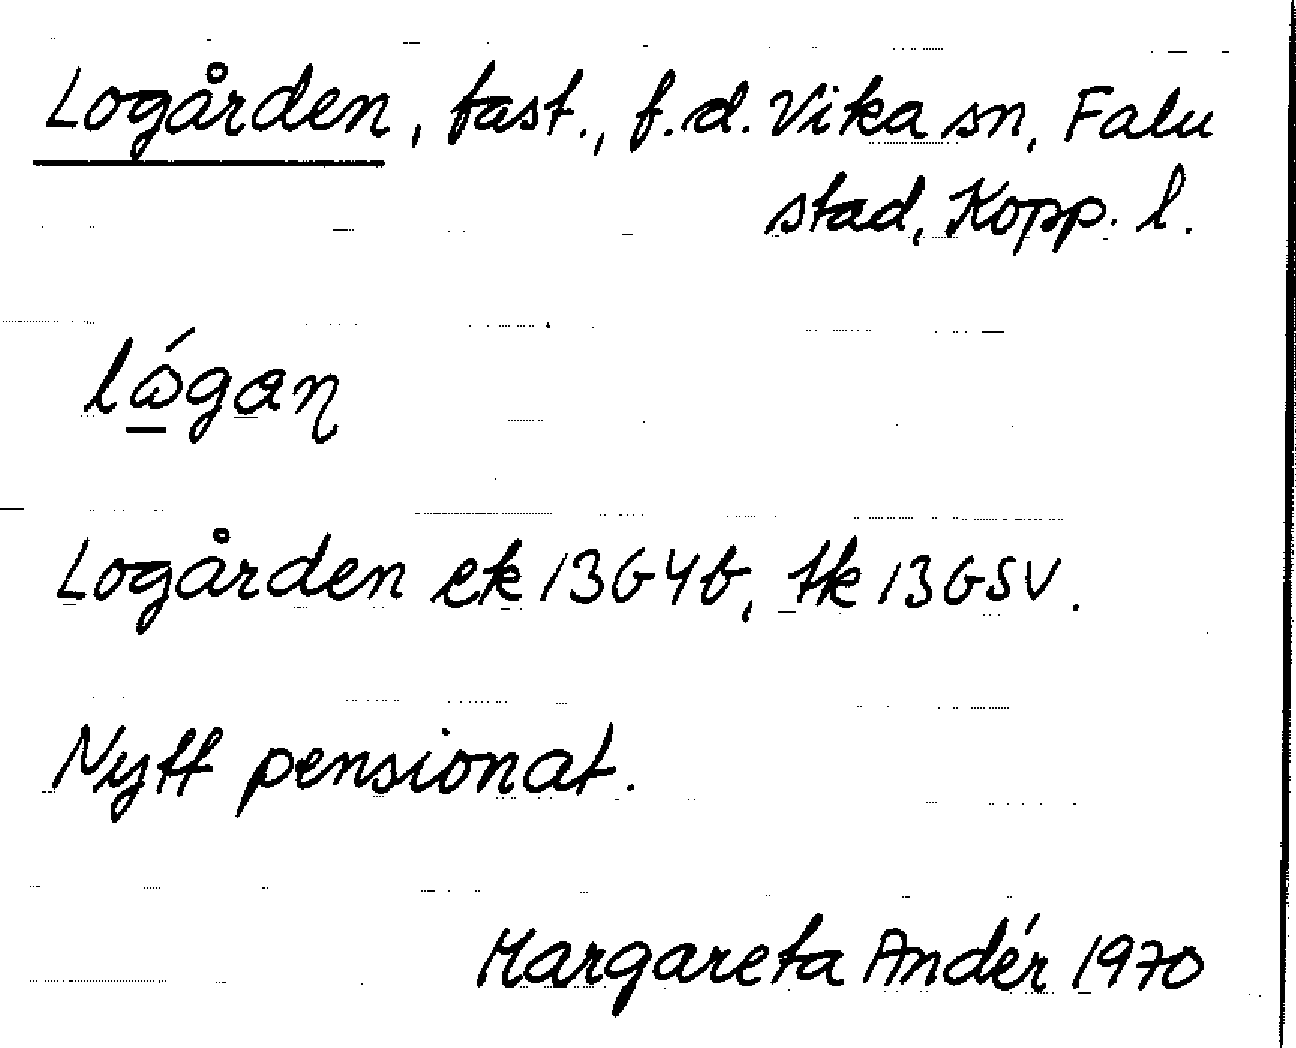 Logården, fast., f.d. Vika sn, Falu
stad, Kopp. l.
Logården ek 13G4b, tk 13GSV.
Nytt pensionat.
Margareta Andér 1970